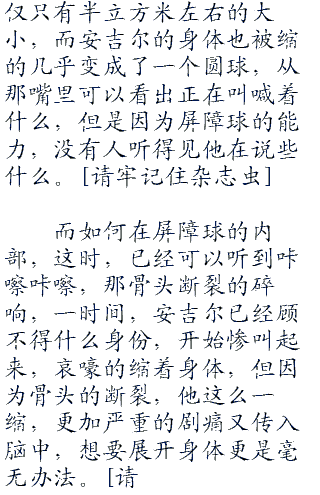 仅只有半立方米左右的大
小，而安吉尔的身体也被缩
的几乎变成了一个圆球，从
那嘴里可以看出正在叫喊着
什么，但是因为屏障球的能
力，没有人听得见他在说些
什么。[请牢记住杂志虫]
而如何在屏障球的内
部，这时，已经可以听到咔
嚓咔嚓，那骨头断裂的碎
响，一时间，安吉尔已经顾
不得什么身份，开始惨叫起
来，哀嚎的缩着身体，但因
为骨头的断裂，他这么一
缩，更加严重的剧痛又传入
脑中，想要展开身体更是毫
无办法。[请